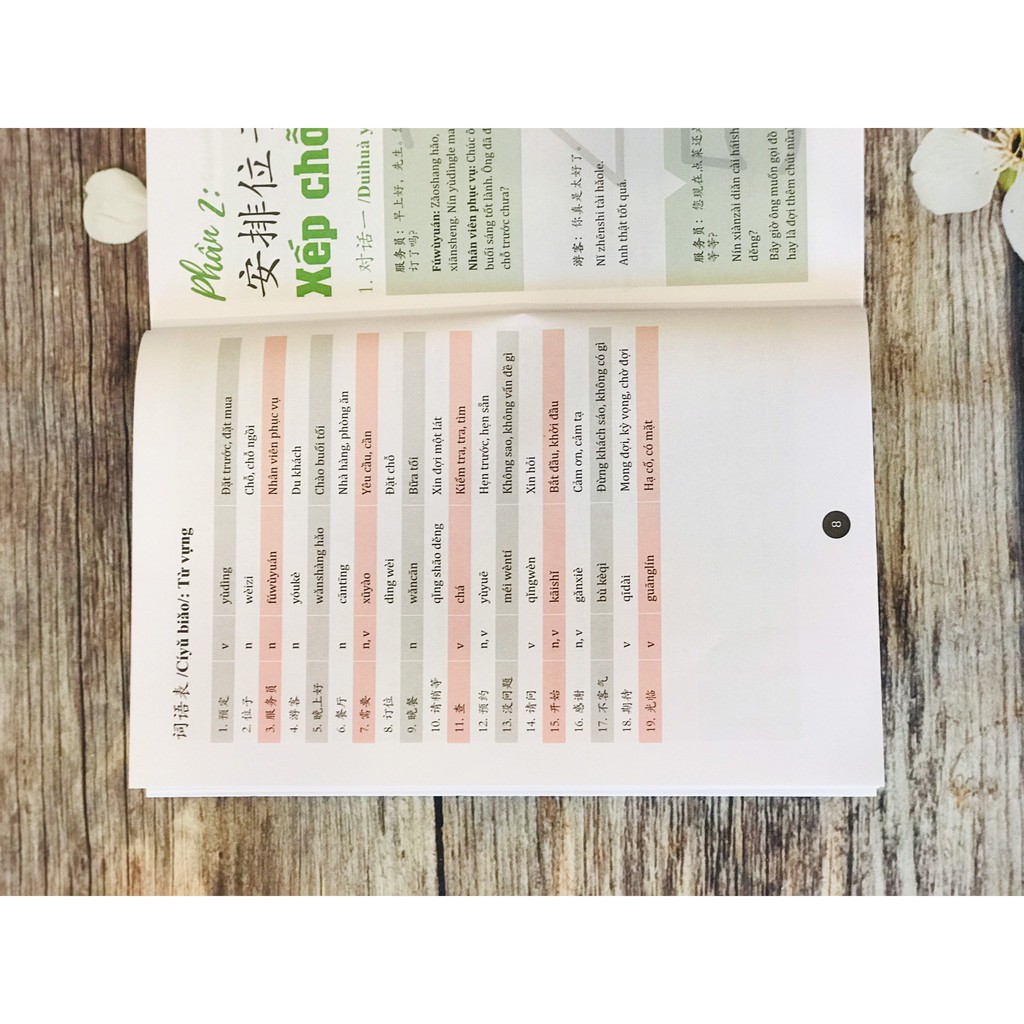 词语表 /Cíyǔ biǎo/: Từ vựng
1. 预定 v yùdìng Đặt trước, đặt mua
2. 位子 n wèizi Chỗ, chỗ ngồi
3. 服务员 n fúwùyuán Nhân viên phục vụ
4. 游客 n yóukè Du khách
5. 晚上好 wǎnshàng hǎo Chào buổi tối
6. 餐厅 n cāntīng Nhà hàng, phòng ăn
7. 需要 n, v xūyào Yêu cầu, cần
8. 订位 dìng wèi Đặt chỗ
9. 晚餐 n wǎncān Bữa tối
10. 请稍等 qǐng shāo děng Xin đợi một lát
11. 查 v chá Kiểm tra, tra, tìm
12. 预约 n, v yùyuē Hẹn trước, hẹn sẵn
13. 没问题 méi wèntí Không sao, không vấn đề gì
14. 请问 v qǐngwèn Xin hỏi
15. 开始 n, v kāishǐ Bắt đầu, khởi đầu
16. 感谢 n, v gǎnxiè Cảm ơn, cảm tạ
17. 不客气 bù kèqì Đừng khách sáo, không có gì
18. 期待 v qídài Mong đợi, kỳ vọng, chờ đợi
19. 光临 v guānglín Hạ cố, có mặt
8
Phần 2:
安排位
Xếp chỗ
1. 对话一 /Duìhuà y
服务员：早上好，先生。
订了吗？
Fúwùyuán: Zǎoshang hǎo,
xiānsheng. Nín yùdìngle ma
Nhân viên phục vụ: Chúc ô
buổi sáng tốt lành. Ông đã đ
chỗ trước chưa?
游客：你真是太好了。
Nǐ zhēnshi tài hǎole.
Anh thật tốt quá.
服务员：您现在点菜还
等等？
Nín xiànzài diǎn cài háish
děng?
Bây giờ ông muốn gọi đồ
hay là đợi thêm chút nữa